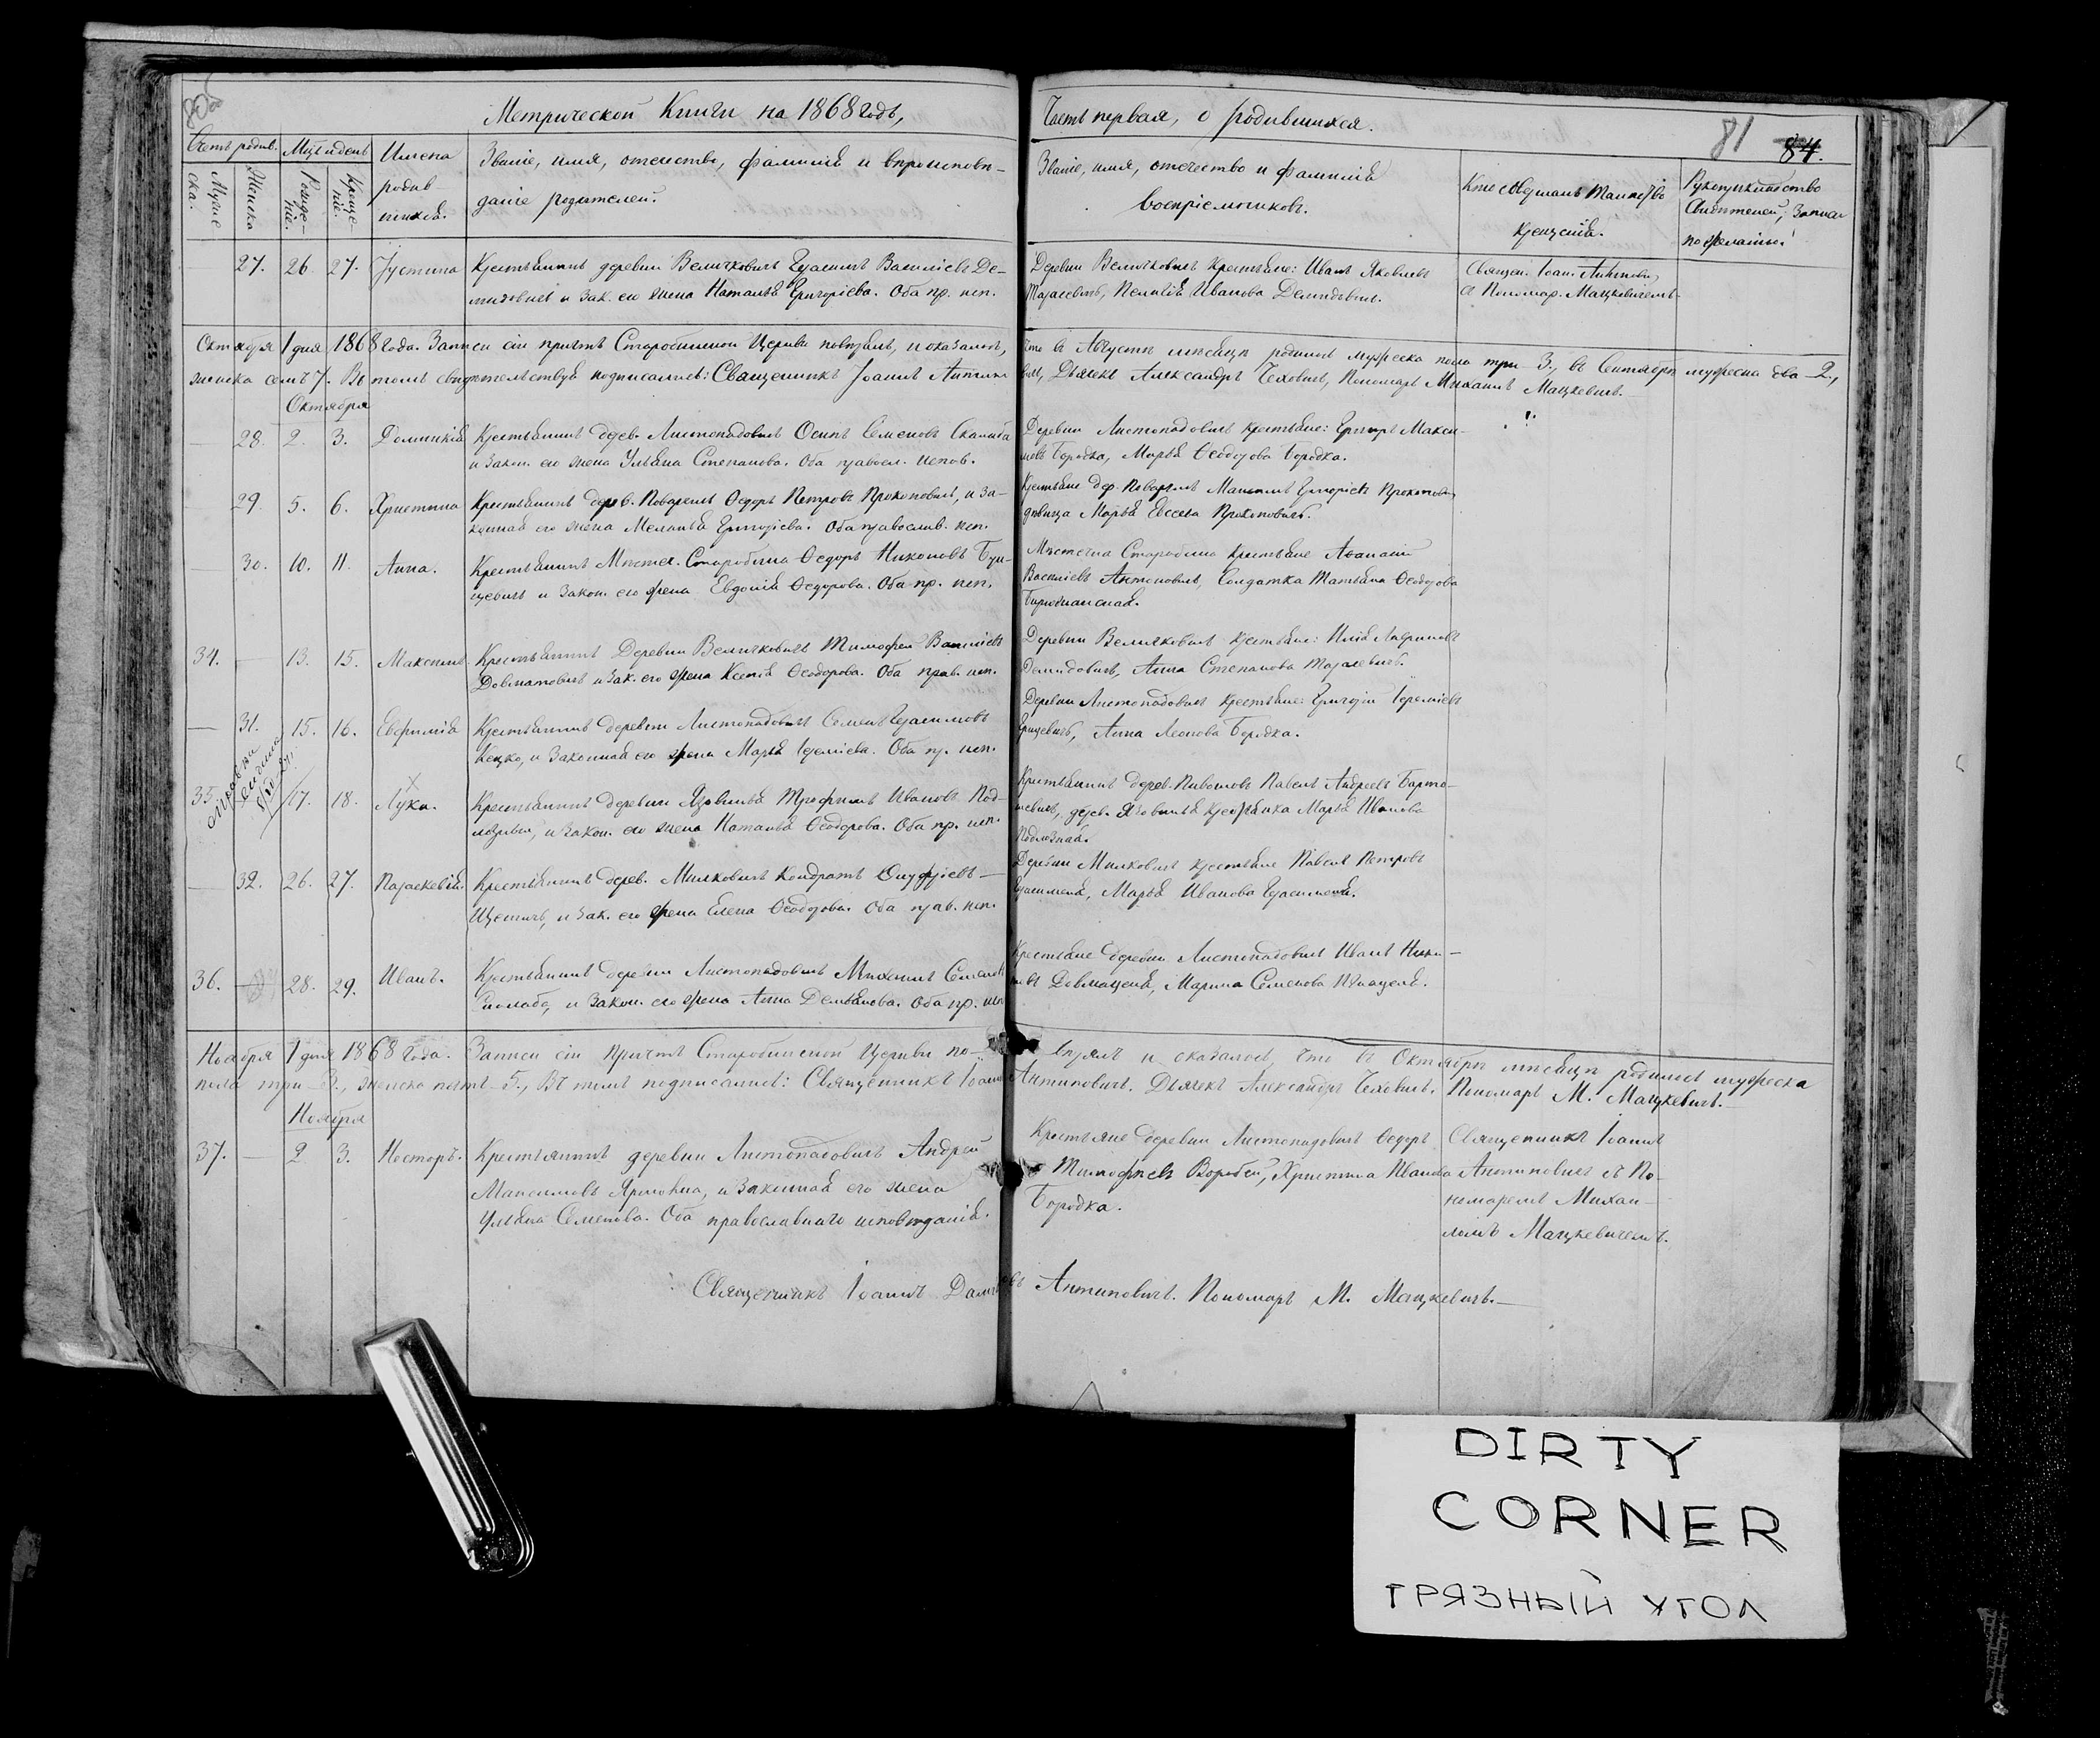 Метрической Книги на 1868 годъ,
Часть первая, о родившихся.
81 84.
Счетъ родив. Мцъ и день
Мужеска. Женска Рожденіе. Крещеніе.
Имена родив-
шихся.
Званіе, имя, отечество, фамилія и вѣроисповѣ-
даніе родителей.
Званіе, имя, отечество и фамилія
воспріемниковъ.
Кто совершалъ таинство
крещенія.
Рукоприкладство
свидѣтелей, записи
по желанію
27. 26. 27. Іустина Крестьянинъ деревни Величковичъ Герасимъ Василіевъ Де-
мидовичъ и зак. его жена Наталья Григоріева. Оба пр. исп.
Деревни Величковичъ крестьяне: Иванъ Яковлевъ
Тарасевичъ, Пелагія Иванова Демидовичъ.
Священ. Іоан. Антипович
с Пономар. Мацкевичемъ.
Октября 1 дня 1868 года. Записи сіи причтъ Старобинской Церкви повѣрялъ, и оказалось,
что въ Августѣ мѣсяцѣ родилось мужеска пола три 3., въ Сентябрѣ мужеска два 2.,
женска семь 7. Въ томъ свидѣтельствуя подписались: Священникъ Іоаннъ Антипо
вичъ, Дьячекъ Александръ Чеховичъ, Пономарь Михаилъ Мацкевичъ.
Октября
— 28. 2. 3. Домникія Крестьянинъ дерев. Листопадовичъ Осипъ Семеновъ Скалиба
и закон. его жена Ульяна Степанова. Оба правосл. испов.
Деревни Листопадовичъ крестьяне: Григорь Макси-
мовъ Бородка, Марья Ѳеодорова Бородка.
29. 5. 6. Христина Крестьянинъ дерев. Ѳедоръ Петровъ Прокоповичъ, и за-
конная его жена Меланья Григоріева. Оба православ. исп.
Крестьяне дер. Григоріевъ Прокопович
дѣвица Марья Евсеева Прокоповичъ.
— 30. 10. 11. Анна. Крестьянинъ Мѣстеч. Старобина Ѳедоръ Никоновъ
и закон. его жена Евдокія Ѳедорова. Оба пр. исп.
Мѣстечка Старобина крестьяне Аѳанасій
Василіевъ Антоновичъ, Солдатка Татьяна Ѳеодорова
34. — 13. 15. Максимъ. Крестьянинъ Деревни Величковичъ Тимоѳей Василіевъ
Довнаровичъ и зак. его жена Ксенія Ѳеодорова. Оба прав. исп.
Деревни Величковичъ крестьяне: Илія Лавриновъ
Демидовичъ, Анна Степанова Тарасевичъ.
— 31. 15. 16. Евфимія Крестьянинъ деревни Листопадовичъ Семенъ Герасимовъ
Кецко, и законная его жена Марья Іереміева. Оба пр. исп.
Деревни Листопадовичъ крестьяне: Григорій Іереміевъ
Грицевичъ, Анна Леонова Бородка.
35. 17. 18. Лука. Крестьянинъ деревни Язовинья Трофимъ Ивановъ Под-
и закон. его жена Наталья Ѳеодорова. Оба пр. исп.
Крестьянинъ дерев. Павелъ Андреевъ Барто-
шевичъ, дерев. Язовинья крестьянка Марья Иванова
— 32. 26. 27. Параскевія. Крестьянинъ дерев. Милковичъ Кондратъ Онуфріевъ —
и зак. его жена Елена Ѳеодорова. Оба прав. исп.
Деревни Милковичъ крестьяне Павелъ Петровъ
Герасименя, Марья Иванова Герасименя.
36. — 28. 29. Иванъ. Крестьянинъ деревни Листопадовичъ Михаилъ Семеновъ
и закон. его жена Анна Демьянова. Оба пр. исп
Крестьяне деревни Листопадовичъ Иванъ Ники-
Марина Семенова
Ноября 1 дня 1868 года. Записи сіи причтъ Старобинской Церкви по-
вѣрялъ и оказалось, что въ Октябрѣ мѣсяцѣ родилось мужеска
пола три 3., женска пять 5., Въ томъ подписались: Священникъ Іоаннъ
Антиповичъ. Дьячекъ Александръ Чеховичъ. Пономарь М. Мацкевичъ.—
Ноября
37. — 2 3. Несторъ. Крестьянинъ деревни Листопадовичъ Андрей
Максимовъ Ярмовка, и законная его жена
Ульяна Семенова. Оба православнаго исповѣданія.
Крестьяне деревни Листопадовичъ Ѳедоръ
Тимоѳеевъ Воробей, Христина Иванова
Бородка.
Священникъ Іоаннъ
Антиповичъ съ По-
номаремъ Михаи-
ломъ Мацкевичемъ.
Священникъ Іоаннъ Антиповичъ. Пономарь М. Мацкевичъ.—
DIRTY
CORNER
ГРЯЗНЫЙ УГОЛ